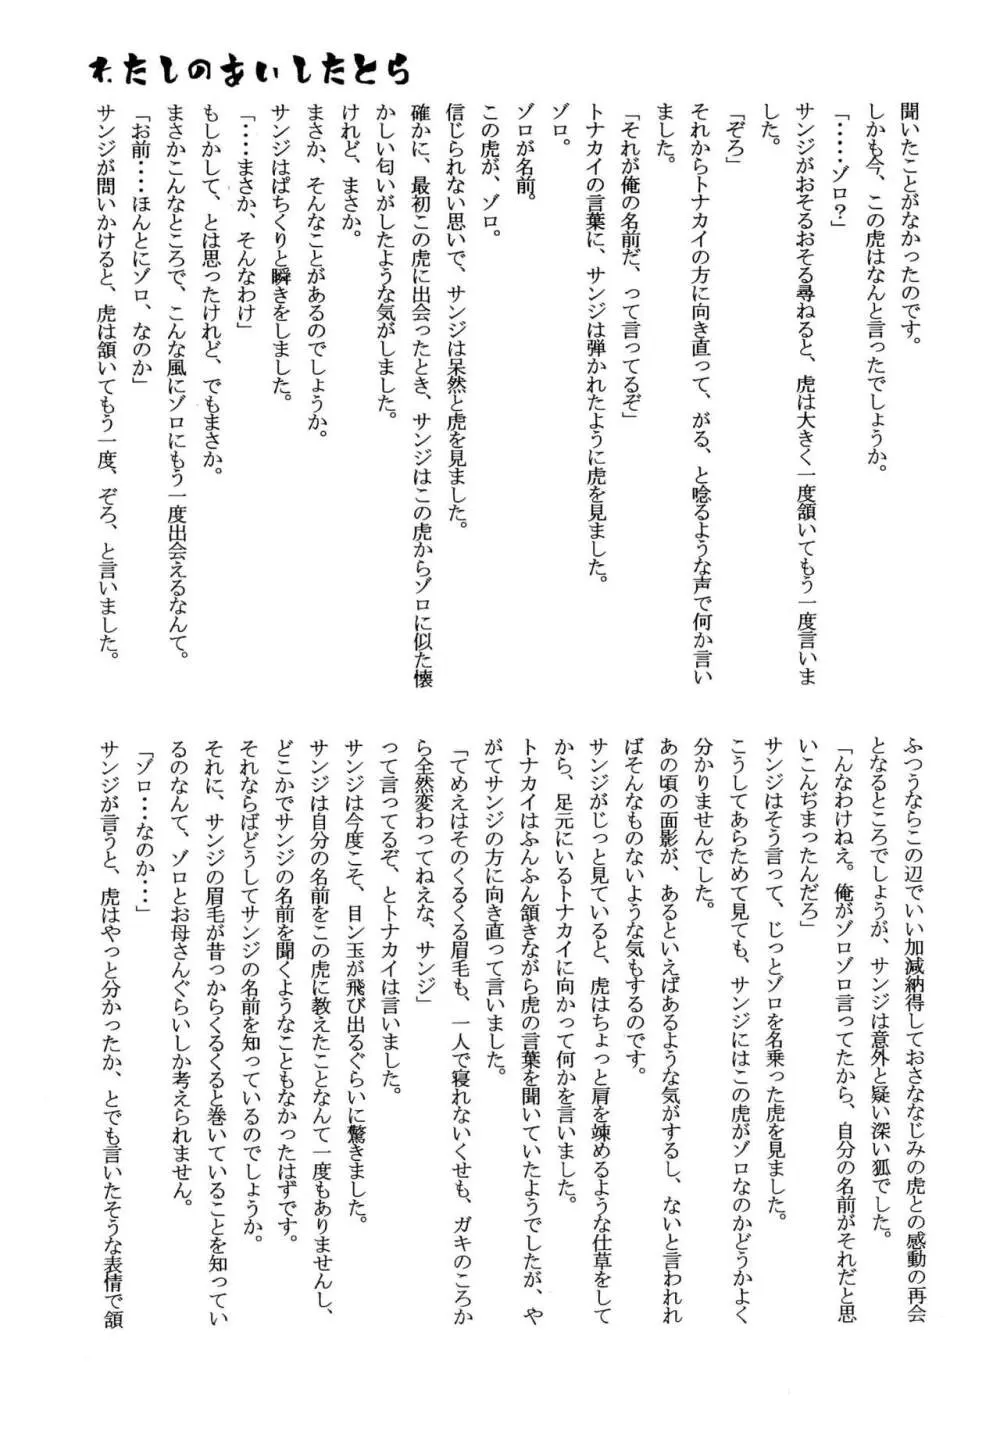 わたしのあいしたとら
聞いたことがなかったのです。
しかも今、この虎はなんと言ったでしょうか。
「‥‥ゾロ？」
サンジがおそるおそる尋ねると、虎は大きく一度頷いてもう一度言いま
した。
「ぞろ」
それからトナカイの方に向き直って、がる、と唸るような声で何か言い
ました。
「それが俺の名前だ、って言ってるぞ」
トナカイの言葉に、サンジは弾かれたように虎を見ました。
ゾロ。
ゾロが名前。
この虎が、ゾロ。
信じられない思いで、サンジは呆然と虎を見ました。
確かに、最初この虎に出会ったとき、サンジはこの虎からゾロに似た懐
かしい匂いがしたような気がしました。
けれど、まさか。
まさか、そんなことがあるのでしょうか。
サンジはぱちくりと瞬きをしました。
「‥‥まさか、そんなわけ」
もしかして、とは思ったけれど、でもまさか。
まさかこんなところで、こんな風にゾロにもう一度出会えるなんて。
「お前‥‥ほんとにゾロ、なのか」
サンジが問いかけると、虎は頷いてもう一度、ぞろ、と言いました。
ふつうならこの辺でいい加減納得しておさななじみの虎との感動の再会
となるところでしょうが、サンジは意外と疑い深い狐でした。
「んなわけねえ。俺がゾロゾロ言ってたから、自分の名前がそれだと思
いこんぢまったんだろ」
サンジはそう言って、じっとゾロを名乗った虎を見ました。
こうしてあらためて見ても、サンジにはこの虎がゾロなのかどうかよく
分かりませんでした。
あの頃の面影が、あるといえばあるような気がするし、ないと言われれ
ばそんなものないような気もするのです。
サンジがじっと見ていると、虎はちょっと肩を竦めるような仕草をして
から、足元にいるトナカイに向かって何かを言いました。
トナカイはふんふん頷きながら虎の言葉を聞いていたようでしたが、や
がてサンジの方に向き直って言いました。
「てめえはそのくるくる眉毛も、一人で寝れないくせも、ガキのころか
ら全然変わってねえな、サンジ」
って言ってるぞ、とトナカイは言いました。
サンジは今度こそ、目ン玉が飛び出るぐらいに驚きました。
サンジは自分の名前をこの虎に教えたことなんて一度もありませんし、
どこかでサンジの名前を聞くようなこともなかったはずです。
それならばどうしてサンジの名前を知っているのでしょうか。
それに、サンジの眉毛が昔っからくるくると巻いていることを知ってい
るのなんて、ゾロとお母さんぐらいしか考えられません。
「ゾロ‥‥なのか‥‥」
サンジが言うと、虎はやっと分かったか、とでも言いたそうな表情で頷